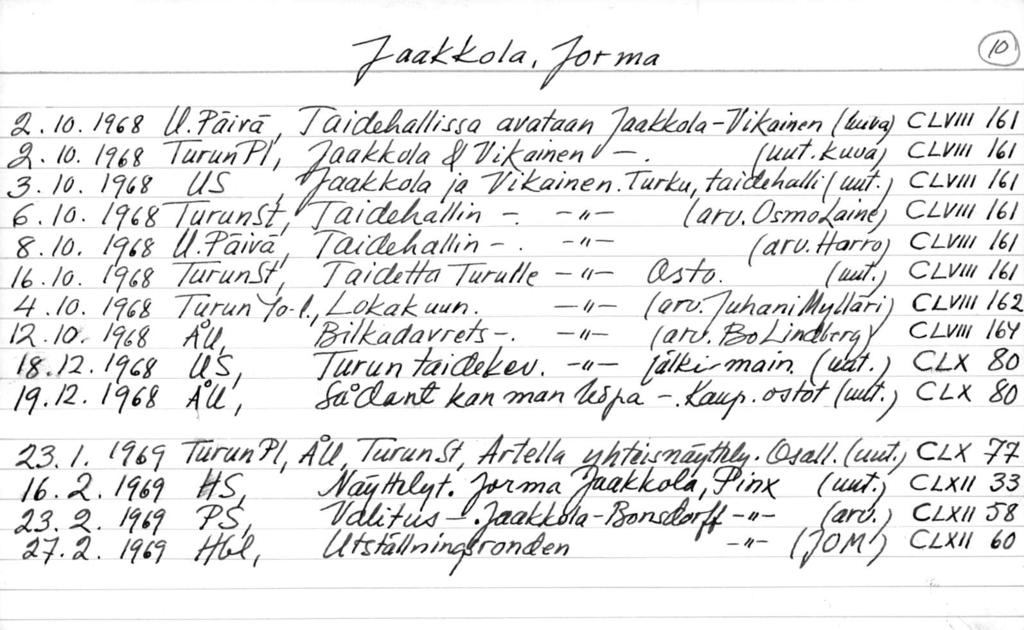 Jaakkola, Jorma 10
2.10.1968 U.Päivä, Taidehallissa avataan Jaakkola-Vikainen (kuva) CLVIII 161
2.10.1968 TurunPl, Jaakkola & Vikainen —. (uut.kuva) CLVIII 161
3.10.1968 US, Jaakkola ja Vikainen. Turku, taidehalli (uut.) CLVIII 161
6.10.1968 TurunSt, Taidehallin —. —"— (arv. Osmo Laine) CLVIII 161
8.10.1968 U.Päivä, Taidehallin —. —"— (arv. Harro) CLVIII 161
16.10.1968 TurunSt, Taidetta Turulle —"— Osto. (uut.) CLVIII 161
4.10.1968 Turun Yo-l., Lokakuun. —"— (arv. Juhani Mylläri) CLVIII 162
12.10.1968 ÅU, Bilkadavrets —. —"— (arv. Bo Lindberg) CLVIII 164
18.12.1968 US, Turun taidekev. —"— jälki-main. (uut.) CLX 80
19.12.1968 ÅU, Sådant kan man — . Kaup. ostot (uut.) CLX 80
23.1.1969 TurunPl, ÅU, TurunSt, Artella yhteisnäyttely. Osall. (uut.) CLX 77
16.2.1969 HS, Näyttelyt. Jorma Jaakkola, Pinx (uut.) CLXII 33
23.2.1969 PS, Valitus —. Jaakkola-Bonsdorff —"— (arv.) CLXII 58
27.2.1969 Hbl, Utställningsronden —"— (JOM) CLXII 60